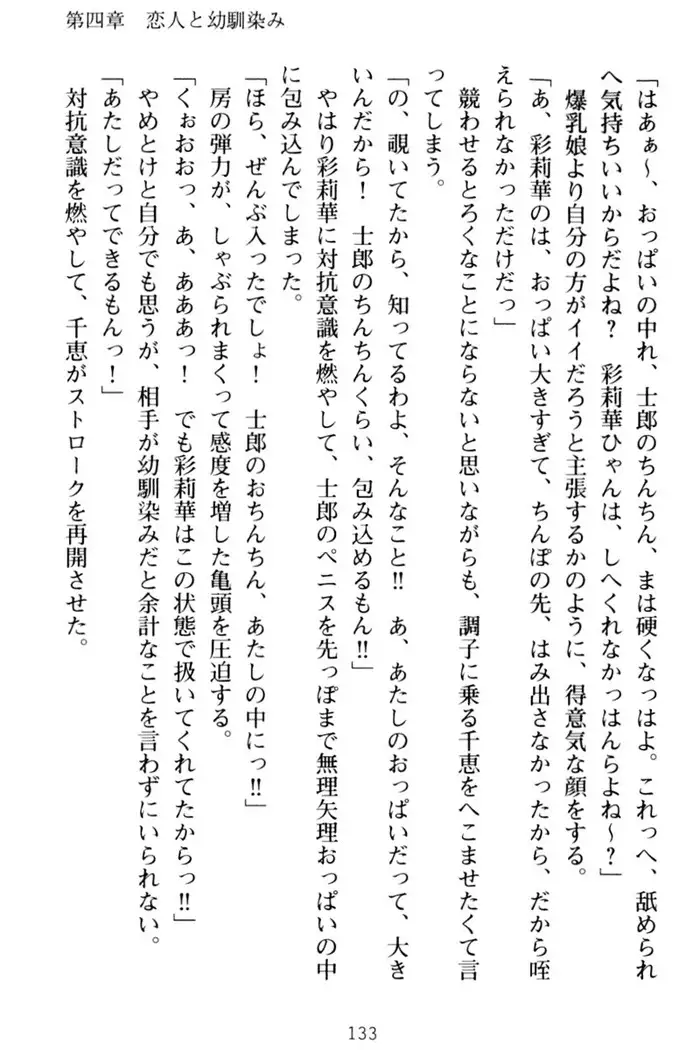 第四章　恋人と幼馴染み
「はあぁ〜、おっぱいの中れ、士郎のちんちん、まは硬くなっはよ。これっへ、舐められ
へ気持ちいいからだよね？　彩莉華ひゃんは、しへくれなかっはんらよね〜？」
爆乳娘より自分の方がイイだろうと主張するかのように、得意気な顔をする。
「あ、彩莉華のは、おっぱい大きすぎて、ちんぽの先、はみ出さなかったから、だから咥
えられなかっただけだっ」
競わせるとろくなことにならないと思いながらも、調子に乗る千恵をへこませたくて言
ってしまう。
「の、覗いてたから、知ってるわよ、そんなこと!!　あ、あたしのおっぱいだって、大き
いんだから！　士郎のちんちんくらい、包み込めるもん!!」
やはり彩莉華に対抗意識を燃やして、士郎のペニスを先っぽまで無理矢理おっぱいの中
に包み込んでしまった。
「ほら、ぜんぶ入ったでしょ！　士郎のおちんちん、あたしの中にっ!!」
房の弾力が、しゃぶられまくって感度を増した亀頭を圧迫する。
「くぉおおっ、あ、あああっ！　でも彩莉華はこの状態で扱いてくれてたからっ!!」
やめとけと自分でも思うが、相手が幼馴染みだと余計なことを言わずにいられない。
「あたしだってできるもんっ！」
対抗意識を燃やして、千恵がストロークを再開させた。
133